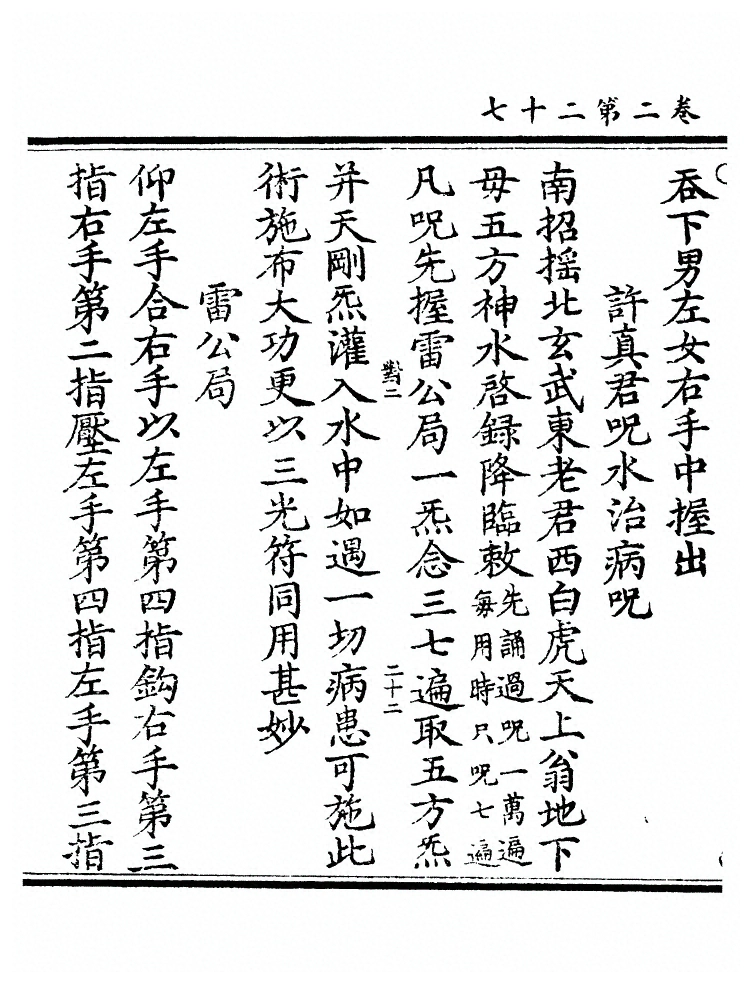 卷二第二十七
吞下男左女右手中握出
許真君呪水治病呪
南招揺北玄武東老君西白虎天上翁地下
毋五方神水啓録降臨敕先誦過呪一萬遍每用時只呪七遍
凡呪先握雷公局一炁念三七遍取五方炁
對二
二十二
并天剛炁灌入水中如遇一切病患可施此
術施布大功更以三光符同用甚妙
雷公局
仰左手合右手以左手第四指鈎右手第三
指右手第二指壓左手第四指左手第三指